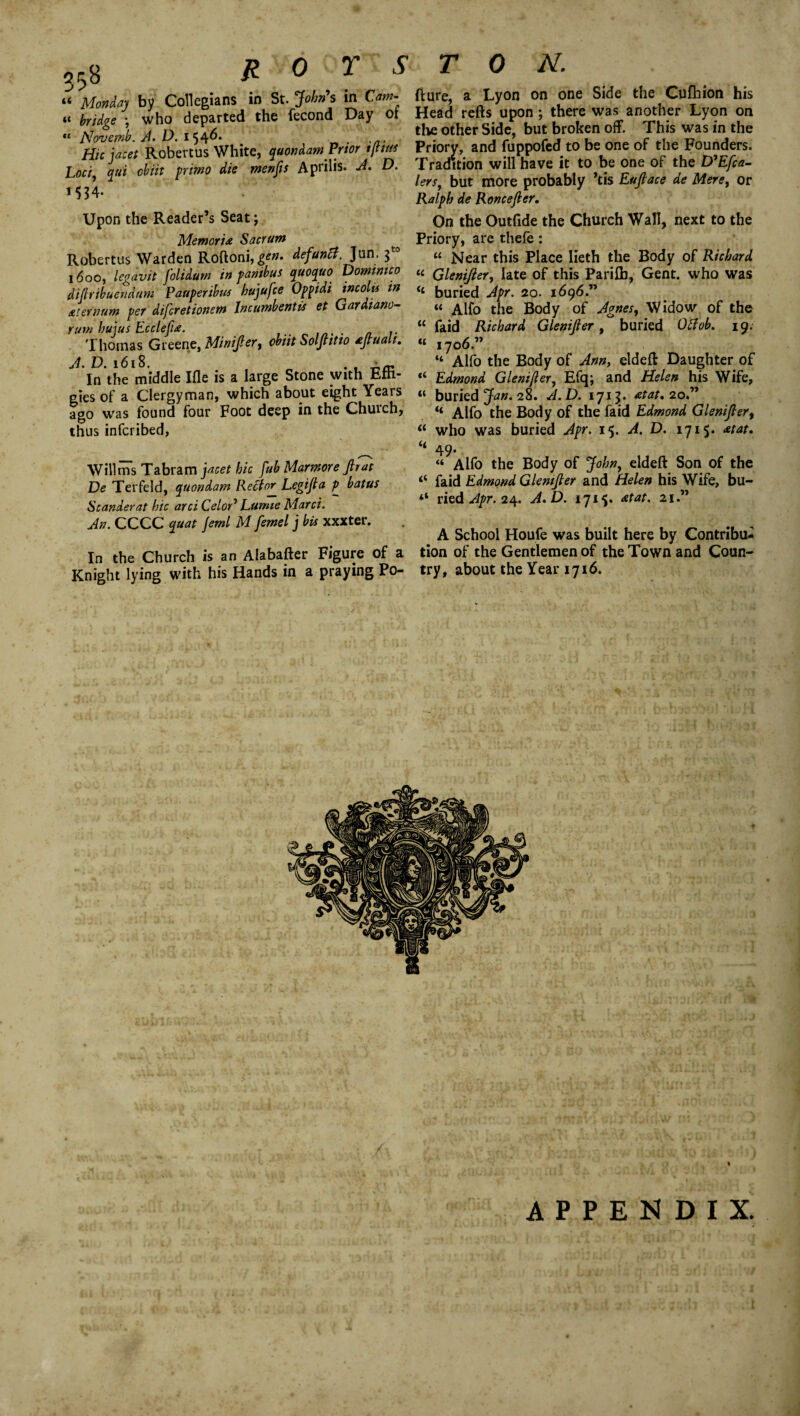 358
ROYSTON.
“ Monday by Collegians in St. John's in Cam-
“ bridge ; who departed the ſecond Day of
“ Novemb. A. D. 1546.
Hic jacet Robertus White, quondam Prior iſtius
Loci, qui obiit primo die menſis Aprilis. A. D.
1534.
Upon the Reader’s Seat;
Memoriæ Sacrum
Robertus Warden Roſtoni, gen. defunct. Jun. 3to
1600, legavit ſolidum in panibus quoquo Dominico
diſtribuendum Pauperibus hujuſce Oppidi incolis in
æternum per diſcretionem Incumbentis et Gardiano-
rum hujus Eccleſiæ.
Thomas Greene, Miniſter, obiit Solſtitio æſtuali.
A. D. 1618.
In the middle Iſle is a large Stone with Effi-
gies of a Clergyman, which about eight Years
ago was found four Foot deep in the Church,
thus inſcribed,
Willm̄s Tabram jacet hic ſub Marmore ſtrat
De Terfeld, quondam Rector Legiſta p batus
Scanderat hic arci Celor’ Lumīe Marci.
An. CCCC quat ſeml M ſemel j bis xxxter.
In the Church is an Alabaſter Figure of a
Knight lying with his Hands in a praying Po-
ſture, a Lyon on one Side the Cuſhion his
Head reſts upon ; there was another Lyon on
the other Side, but broken off. This was in the
Priory, and ſuppoſed to be one of the Founders.
Tradition will have it to be one of the D’Eſca-
lers, but more probably ’tis Euſtace de Mere, or
Ralph de Ronceſter.
On the Outſide the Church Wall, next to the
Priory, are theſe :
“ Near this Place lieth the Body of Richard
“ Gleniſter, late of this Pariſh, Gent. who was
“ buried Apr. 20. 1696.”
“ Alſo the Body of Agnes, Widow of the
“ ſaid Richard Gleniſter, buried Octob. 19.
“ 1706.”
“ Alſo the Body of Ann, eldeſt Daughter of
“ Edmond Gleniſter, Eſq; and Helen his Wife,
“ buried Jan. 28. A. D. 1713. ætat. 20.”
“ Alſo the Body of the ſaid Edmond Gleniſter,
“ who was buried Apr. 15. A. D. 1715. ætat.
“ 49.
“ Alſo the Body of John, eldeſt Son of the
“ ſaid Edmond Gleniſter and Helen his Wife, bu-
“ ried Apr. 24. A. D. 1715. ætat. 21.”
A School Houſe was built here by Contribu-
tion of the Gentlemen of the Town and Coun-
try, about the Year 1716.
APPENDIX.